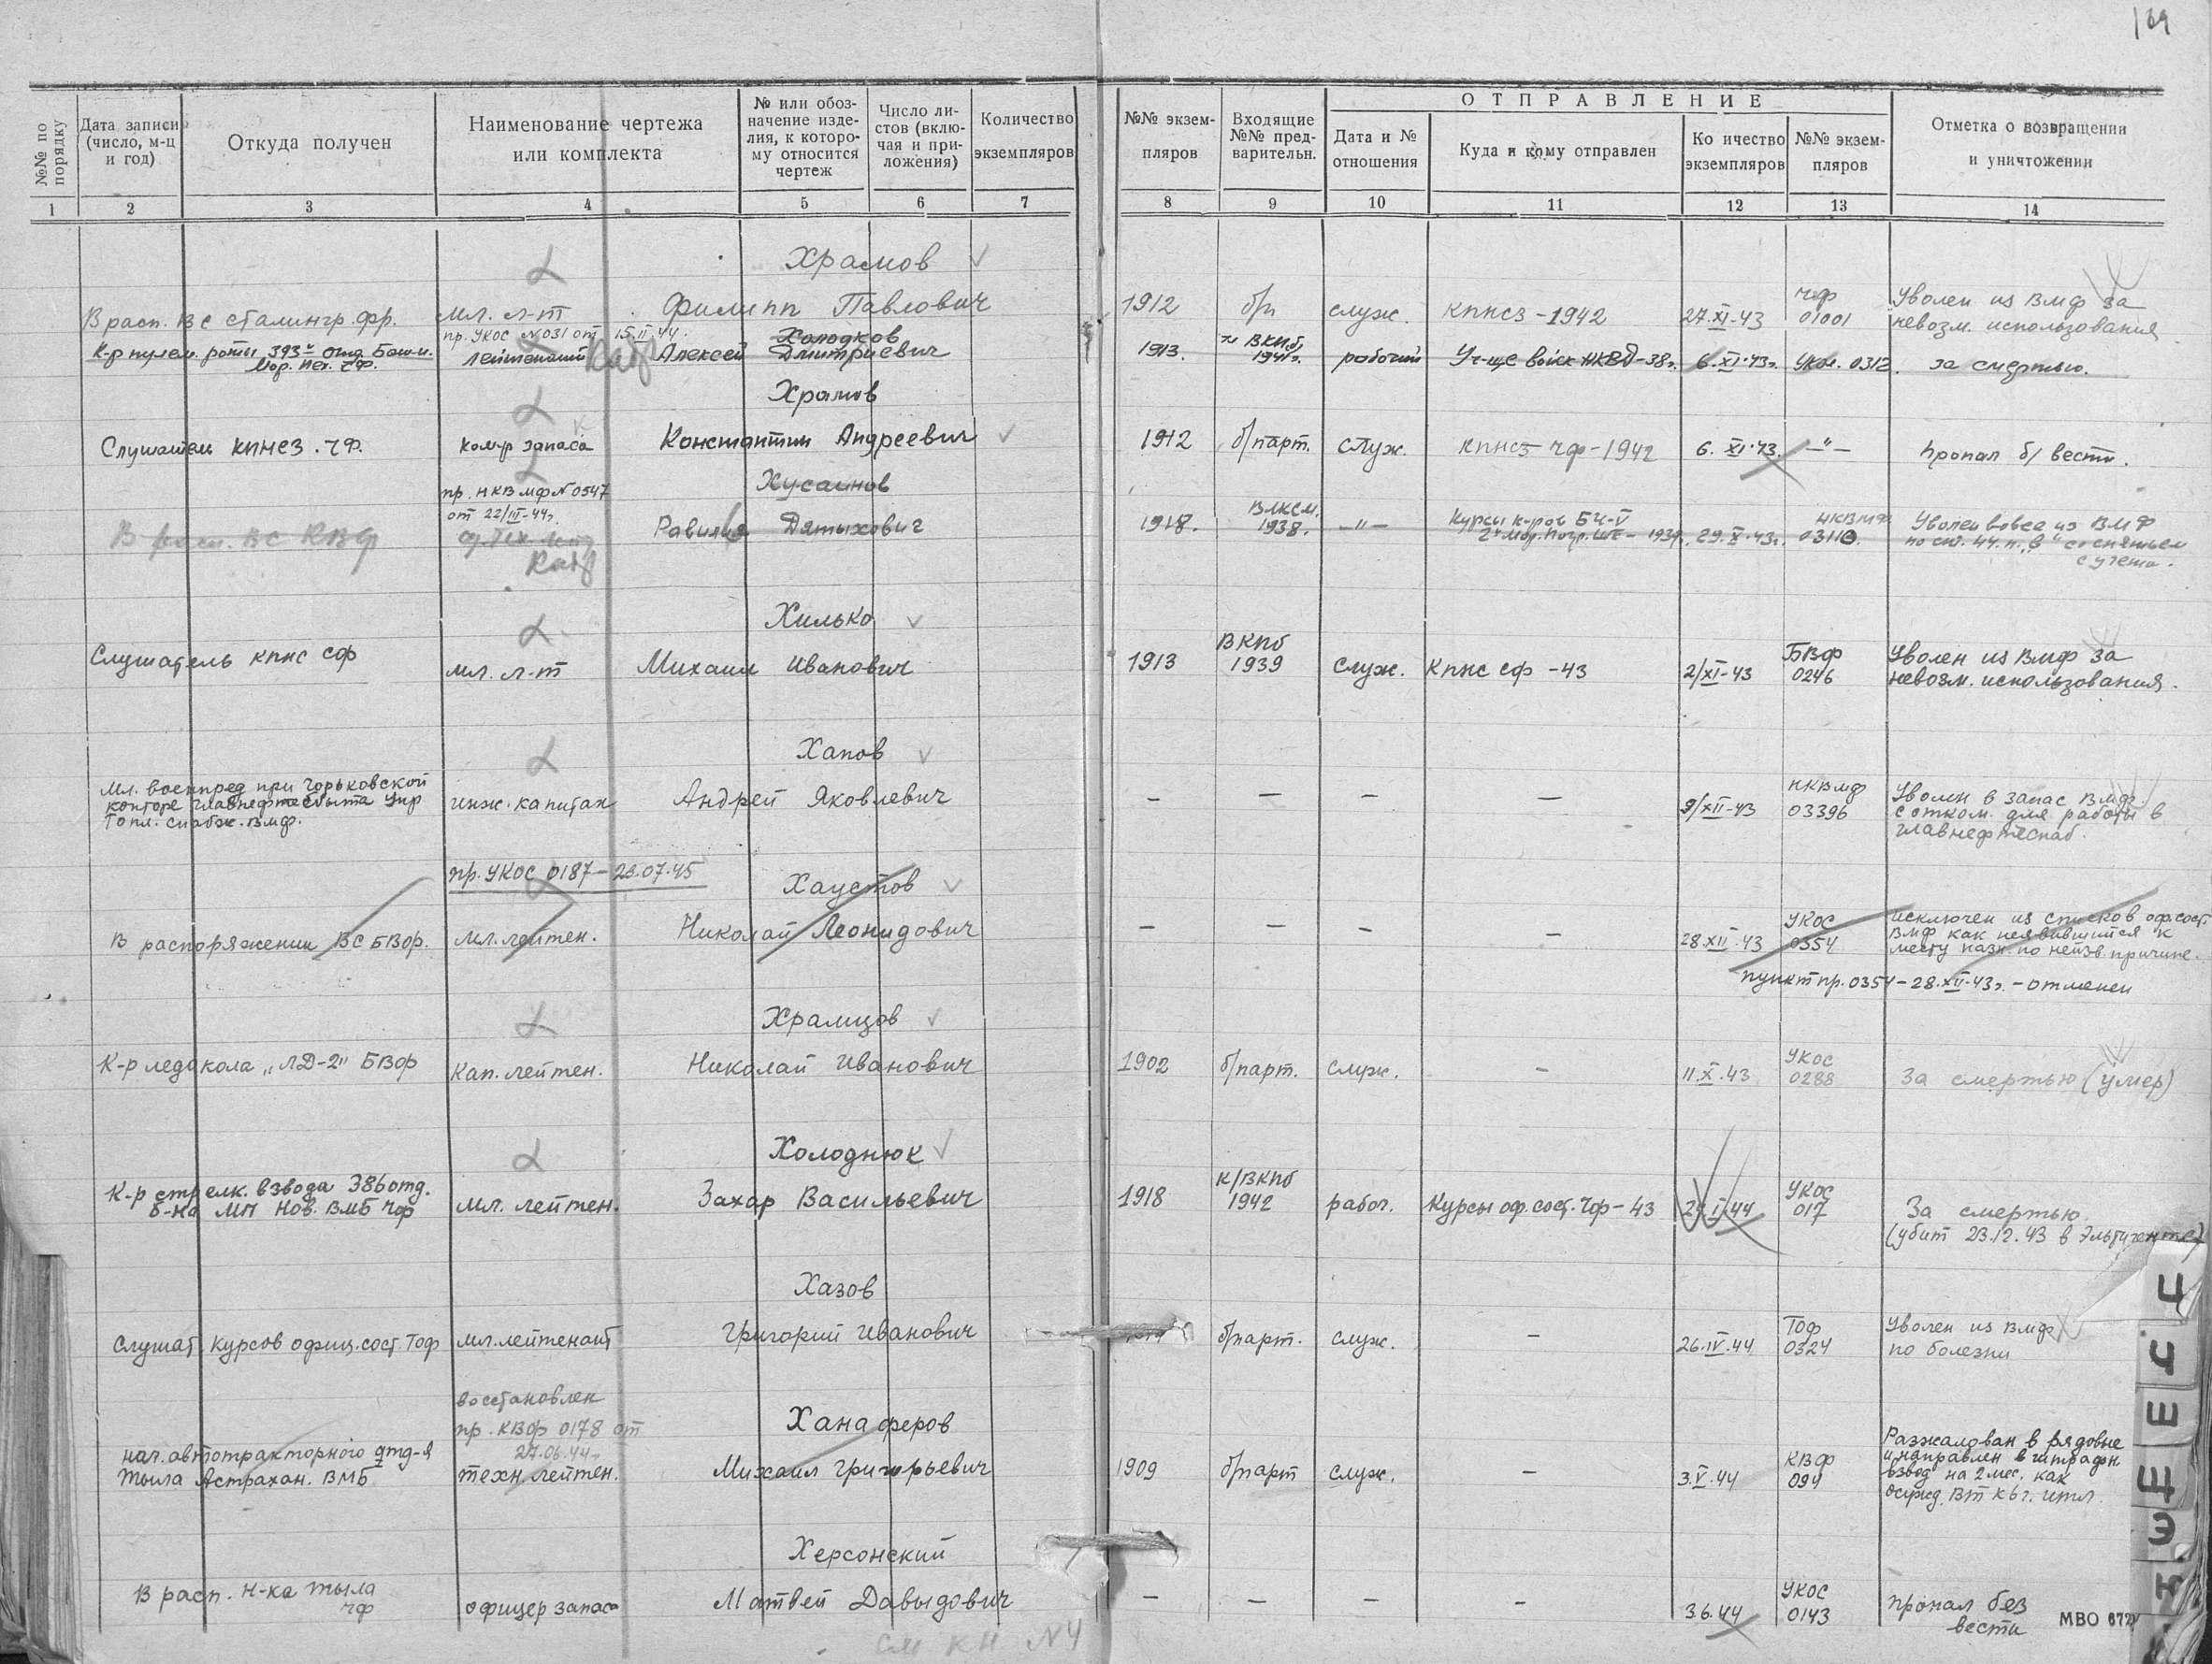 169
№№ по порядку
Дата записи (число, м-ц и год)
Откуда получен
Наименование чертежа или комплекта
№ или обозначение изделия, к которому относится чертеж
Число листов (включая и приложения)
Количество экземпляров
№№ экземпляров
Входящие №№ предварительн.
ОТПРАВЛЕНИЕ
Дата и № отношения
Куда и кому отправлен
Ко ичество экземпляров
№№ экземпляров
Отметка о возвращении и уничтожении
1 2 3 4 5 6 7 8 9 10 11 12 13 14
Храмов
В расп. ВС сталингр. фр. мл. л-т Филипп Павлович 1912 б/п служ. КПНСЗ-1942 27.XI-43 ЧФ 01001 Уволен из ВМФ за
невозм. использования
пр. УКОС №031 от 15.II.44.
Холодков
К-р пулем. роты 393й отд. Бат-н. лейтенант Алексей Дмитриевич 1913. ВКПб 1941г. рабочий Уч-ще войск НКВД-38г. 6.XI.43г. Укос. 0312. за смертью.
Мор. пех. ЧФ.
Храмов
Слушатель КПНСЗ. ЧФ. ком-р запаса Константин Андреевич 1912 б/парт. служ. КПНСЗ ЧФ-1942 6.XI.43. —"— пропал б/вести.
Хусаинов
пр. НКВМФ №0547
от 22/III-44г.
В расп. ВС КВФ Равиль 1918. ВЛКСМ. 1938. —"— Курсы к-ров БЧ-V
1939. 29.X.43г. НКВМФ Уволен вовсе из ВМФ
по ст. 44. п. „в" со снятием
с учета.
Хилько
Слушатель КПНС СФ мл. л-т Михаил Иванович 1913 ВКПб 1939 служ. КПНС СФ-43 2/XI-43 БВФ 0246 Уволен из ВМФ за
невозм. использования.
Хапов
Мл. военпред при Горьковской
конторе Главнефтесбыта Упр
Топл. снабж. ВМФ. инж. капитан Андрей Яковлевич — — — — 9/XII-43 НКВМФ 03396 Уволен в запас ВМФ
с отком. для работы в
главнефтеснаб.
пр. УКОС 0187-23.07.45
Хаустов
В распоряжении ВС БВФ. мл. лейтен. Николай Леонидович — — — — 28.XII.43 УКОС 0354 исключен из списков оф. сост.
ВМФ как неявившийся к
месту назн. по неизв. причине.
пункт пр. 0354-28.XII-43г. - отменен
Храмцов
К-р ледокола „ЛД-2" БВФ Кап. лейтен. Николай Иванович 1902 б/парт. служ. — 11.X.43 УКОС 0288 За смертью (умер)
Холоднюк
К-р стрелк. взвода 386 отд.
б-на МП Нов. ВМБ ЧФ мл. лейтен. Захар Васильевич 1918 К/ВКПб 1942 рабоч. Курсы оф. сост. ЧФ-43 I.44 УКОС 017 За смертью
(убит 23.12.43 в Эльтигенте)
Хазов
Слушат. курсов офиц. сост ТОФ мл. лейтенант Григорий Иванович б/парт. служ. — 26.IV.44 ТОФ 0324 Уволен из ВМФ
по болезни
восстановлен
пр. КВФ 0178 от
27.06.44г.
Ханаферов
нач. автотракторного отд-я
тыла Астрахан. ВМБ техн. лейтен. Михаил Григорьевич 1909 б/парт служ. — 3.V.44 КВФ 094 Разжалован в рядовые
и направлен в штрафн.
взвод на 2 мес. как
осужд. ВТ к 6 г. ИТЛ
Херсонский
В расп. Н-ка тыла
ЧФ офицер запаса Матвей Давыдович — — — — 3.6.44 УКОС 0143 пропал без
вести
МВО 672
см КН №4